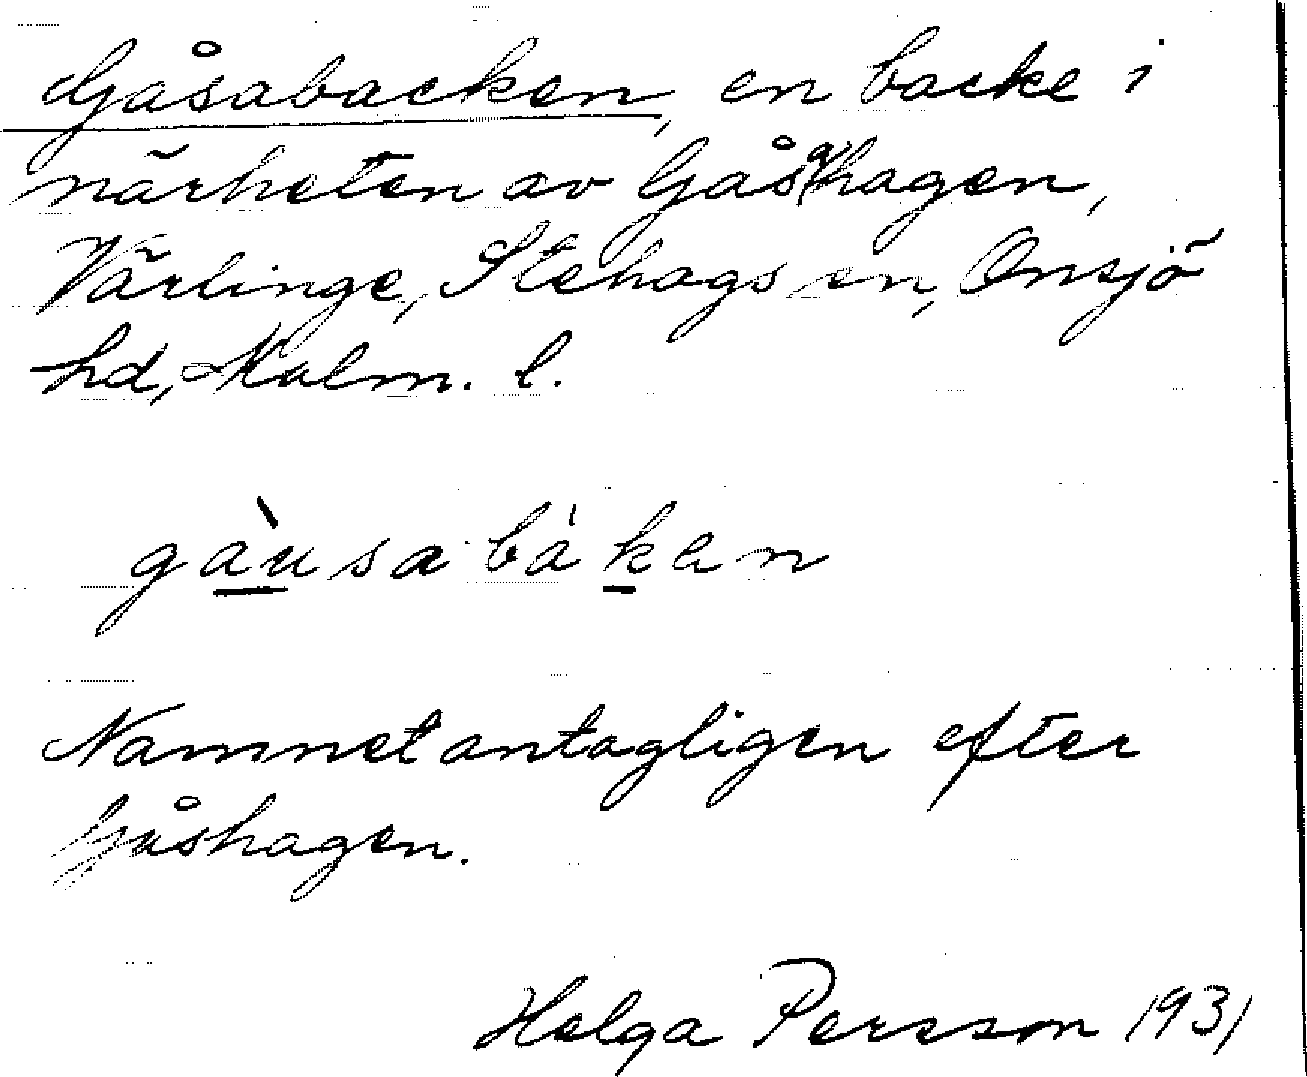 Gåsabacken, en backe i
närheten av Gåsahagen,
Värlinge, Stehags sn, Onsjö
hd, Malm. l.
gàusabákan
Namnet antagligen efter
Gåshagen.
Helga Persson 1931